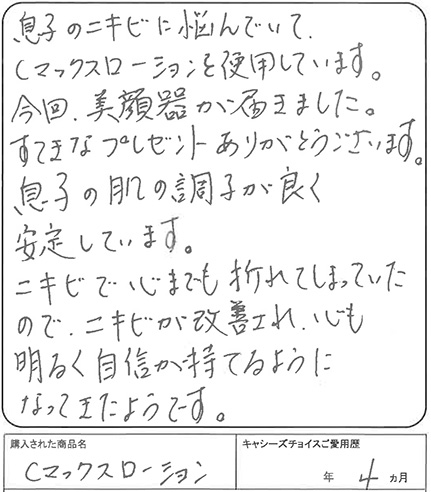 息子のニキビに悩んでいて、
Cマックスローションを使用しています。
今回、美顔器が届きました。
すてきなプレゼントありがとうございます。
息子の肌の調子が良く
安定しています。
ニキビで心までも折れてしまっていた
ので、ニキビが改善され、心も
明るく自信が持てるように
なってきたようです。
購入された商品名
キャシーズチョイスご愛用歴
Cマックスローション
年 4 ヵ月